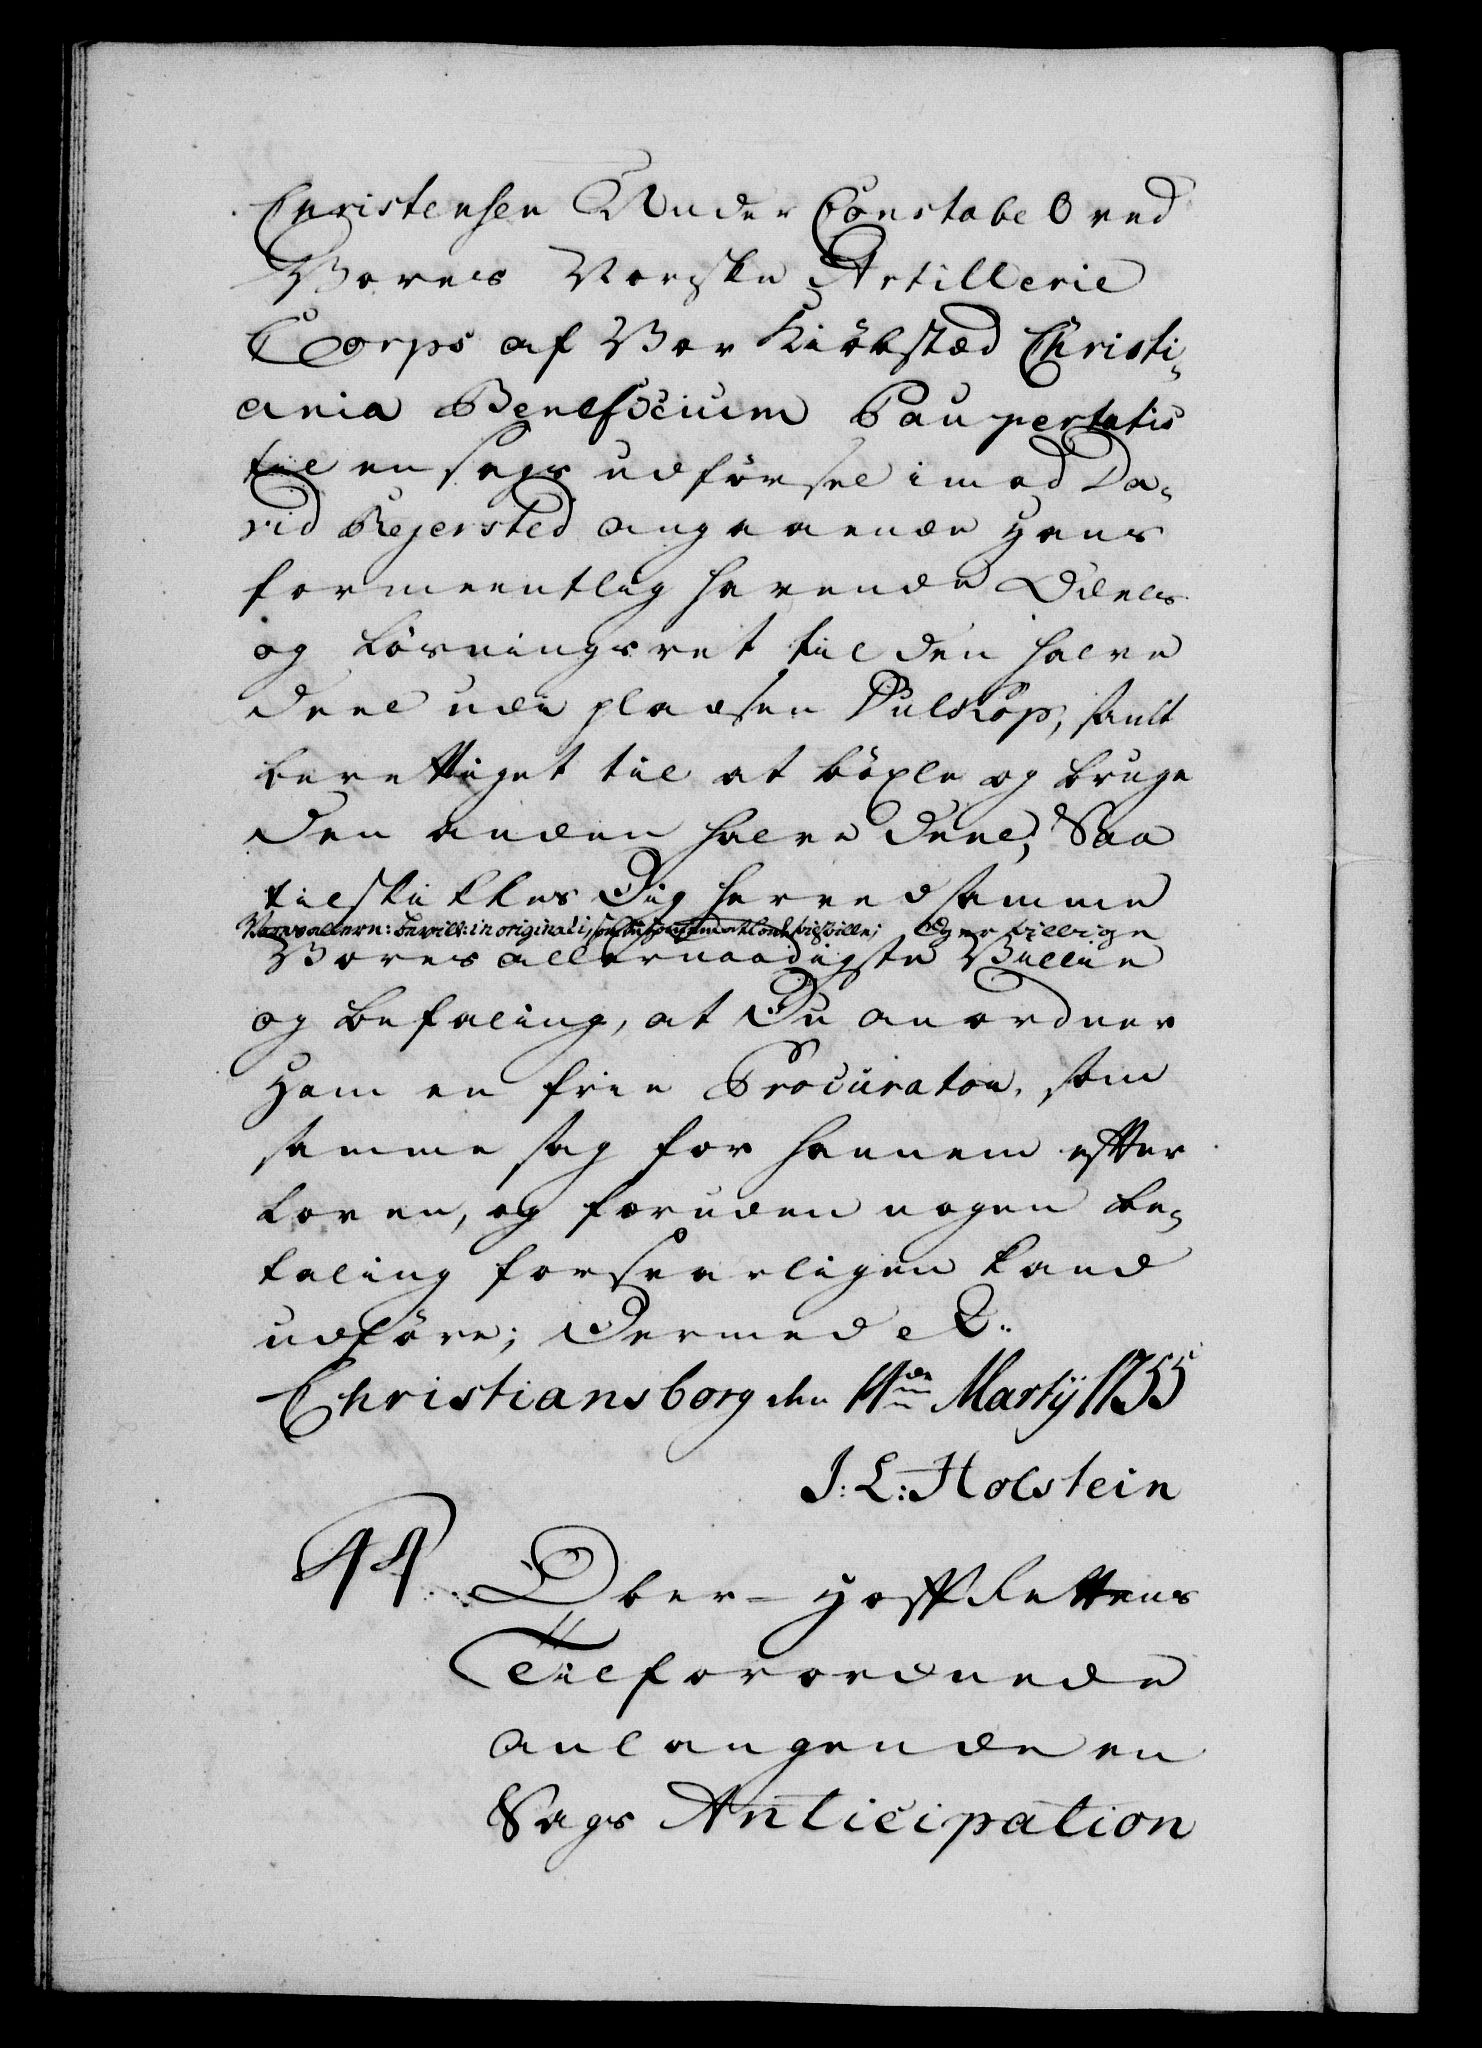 Christensen Under Constabel ved
Vores Norske Artillerie
Corps af Vor Kiöbstæd Christi-
ania Beneficium Paupertatis
til en sags udførsel imod Da-
vid Rejersted angaaende hans
formeentlig havende Odels
og Løsningsret til den halve
Deel udi pladsen Pulskop, samt
berettiget til at böxle og bruge
den anden halve Deel, Saa
tilskikkes Dig herved samme
Vores allern: bevill: in originali, og er
Vores allernaadigste Villie
og befaling, at Du anordner
ham en frie Procurator, som
samme sag for hannem efter
loven, og foruden nogen be-
taling forsvarligen kand
udføre; Dermed &.
Christiansborg den 14de Martij 1755
J: L: Holstein
44. Ober-Hoff Rettens
Tilforordnede
anlangende en
Sags Anticipation